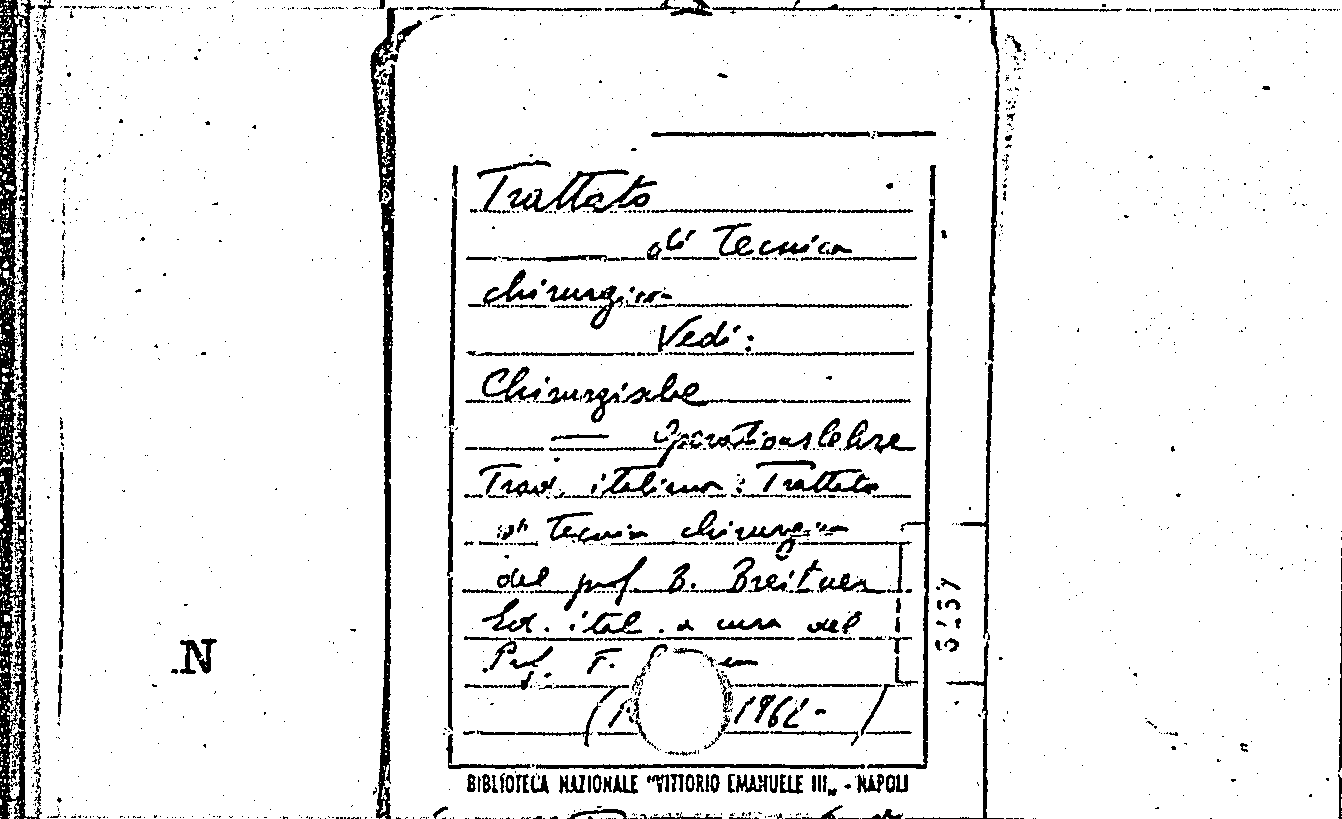 Trattato
di Tecnica
chirurgica
Vedi:
Chirurgische
Operationslehre
Trad. italiana: Trattato
di tecnica chirurgica
del prof. B. Breitner
Ed. ital. a cura del
Prof. F.
( 1962- )
BIBLIOTECA NAZIONALE "VITTORIO EMANUELE III„ - NAPOLI
N